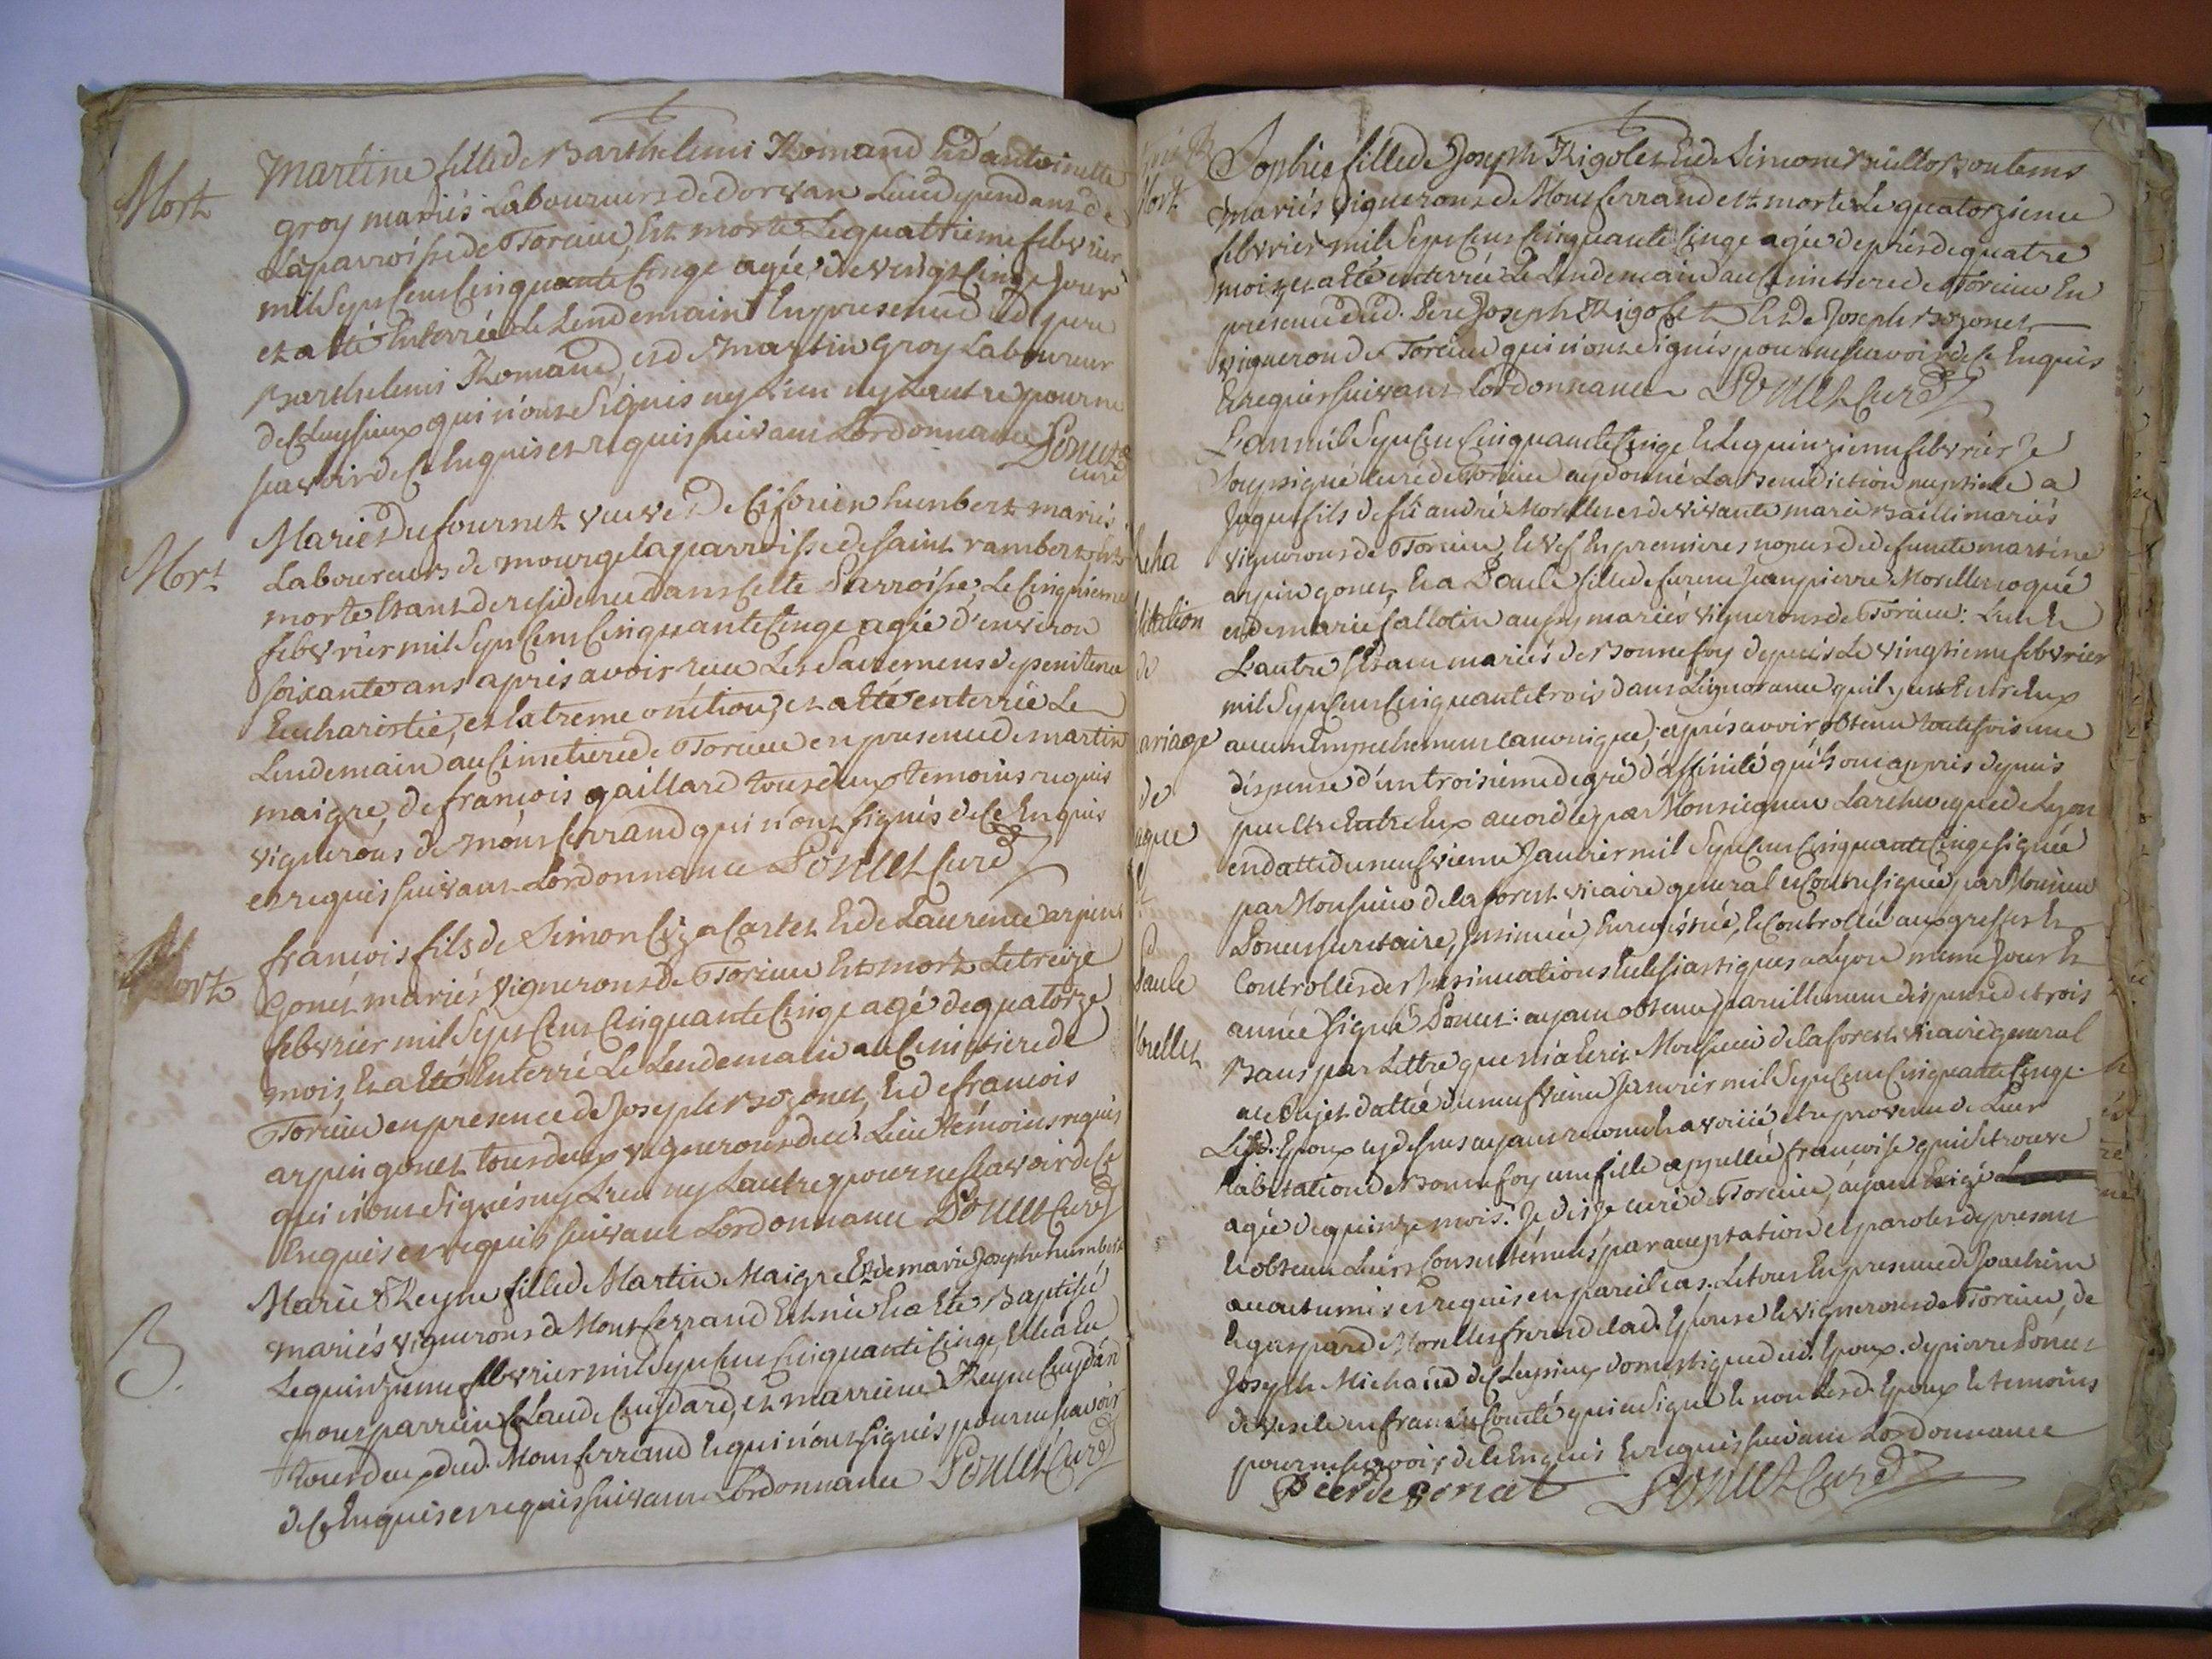 Mort
Martine fille de Barthelemi Romand et d'antoinette
groy mariés Laboureurs de dorvan Lieu dependant de
La parroisse de Torcieu, Est morte Le quattrieme febvrier
mil Sept Cens Cinquante Cinqe agée de vingt Cinqe Jours
et a été Enterrée Le Lendemain En presence dud pere
Barthelemi Romand, et de Martin Groy Laboureur
de Cleysieux qui n'ont Signés ny L'un ny L'autre pour ne
scavoir de Ce Enquis et requis suivant Lordonnance Poncet
curé
Mort
Marie Dufournet veuve de humbert mariés
Laboureurs de mourge la parroisse de saint rambert est
morte Etant de residence dans Cette Parroisse, Le Cinquieme
febvrier mil Sept Cens Cinquante Cinqe agée d'environ
soixante ans apres avoir receu Les Sacremens de penitence
Eucharistie, et Extreme onction, et a été enterrée Le
Lendemain au Cimetiere de Torcieu en presence de martin
maigre, de françois gaillard tous deux temoins requis
vignerons de montferrand qui n'ont signés de Ce Enquis
et requis suivant Lordonnance Poncet Curé
Mort
francois fils de Simon Carlet Et de Laurence arpin
gonet mariés vignerons de Torcieu Est mort Le treize
febvrier mil Sept Cens Cinquante Cinqe agé de quatorze
mois, Et a été Enterré Le Lendemain au Cimetiere de
Torcieu en presence de Joseph Bozonet, Et de francois
arpin gonet tous deux vignerons dud. Lieu témoins requis
qui n'ont Signés ny L'un ny L'autre pour ne scavoir de Ce
Enquis et requis suivant Lordonnance Poncet Curé
B.
Marie Reyne fille de Martin Maigre Et de marie Josephe humbert
mariés vignerons de Montferrand Est née Et a été Baptisée
Le quinzieme febvrier mil Sept Cens Cinquante Cinqe, Elle a Eu
pour parrain Claude Cuzdard, et marreine Reyne
tous deux dud. Montferrand Et qui n'ont signés pour ne scavoir
de Ce Enquis et requis suivant Lordonnance Poncet Curé
Mort
Sophie fille de Joseph Rigolet Et de Simone Bontems
mariés vignerons de Montferrand est morte Le quatorzieme
febvrier mil Sept Cens Cinquante Cinqe agée de près de quatre
mois, et a été enterrée Le Lendemain au Cimetiere de Torcieu En
presence dud. Pere Joseph Rigolet Et de Joseph Bozonet
vigneron de Torcieu qui n'ont signés pour ne scavoir de Ce Enquis
Et requis suivant Lordonnance Poncet Curé
Reha
bilitation
de
mariage
de
Jaque
Et
d
Paule
Morellet
L'an mil Sept Cens Cinquante Cinqe Et Le quinzieme febvrier Je
Soussigné curé de Torcieu ay donné La Benediction nuptiale a
Jaque fils de fû andré Morellet et de vivante marie Bailli mariés
vignerons de Torcieu, Et vef En premieres nopces de defuncte martine
arpin gonet, Et a Paule fille de feu Jean pierre Morellet coqué
et de marie fallotin aussy mariés vignerons de Torcieu: L'un Et
L'autre s'etant mariés de Bonnefoy depuis Le vingtieme febvrier
mil Sept Cens Cinquante trois dans L'ignorance qu'il y eut Entr'eux
aucun Empechement canonique; apres avoir obtenu toutefois une
dispense d'un troisieme degré d'affinité qu'ils ont appris depuis
peu Etre Entr'eux accordée par Monseigneur L'archeveque de Lyon
en datte du neufvieme Janvier mil Sept Cens Cinquante Cinqe signée
par Monsieur de la forest vicaire general et Contresignée par Monsieur
Ponen secretaire, Insinuée, Enregistrée, Et Controllée aux greffes Et
Controlles des Insinuations Eclesiastiques a Lyon meme Jour Et
année signé Ponen: ayant obtenu pareillement dispense de trois
Bans par Lettre que m'a Ecrit Monsieur de la forest vicaire general
a ce sujet dattée du neufvieme Janvier mil Sept Cens Cinquante Cinqe.
Lesd. Epoux cy dessus ayant reconnu Et avoüé etre provenue de Leur
habitation de Bonnefoy une fille appellée francoise qui se trouve
agée de quinze mois. Je dis Je curé de Torcieu, ayant Exigé
Et obtenu Leurs Consentemens par acceptation et paroles de present
accoutumées et requis en pareil cas. Le tout En presence de Joachim
Et gaspard Morellet freres de lad. Epouse Et vignerons de Torcieu, de
Joseph Michaud de Cleysieux domestique dud. Epoux. de pierre Poncet
de en franche Comté qui a signé Et non Lesd. Epoux Et temoins
pour ne scavoir de Ce Enquis Et requis suivant Lordonnance
Poncet Curé